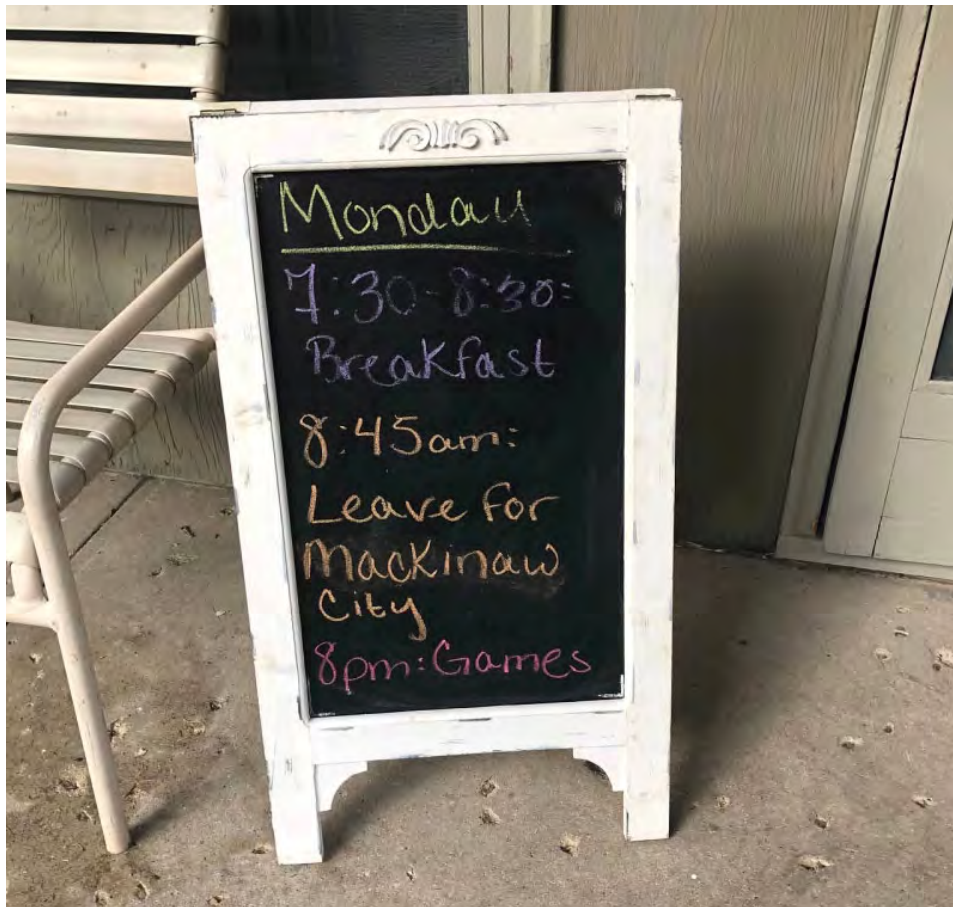 Monday
7:30-8:30:
Breakfast
8:45am:
Leave for
Mackinaw
City
8pm: Games